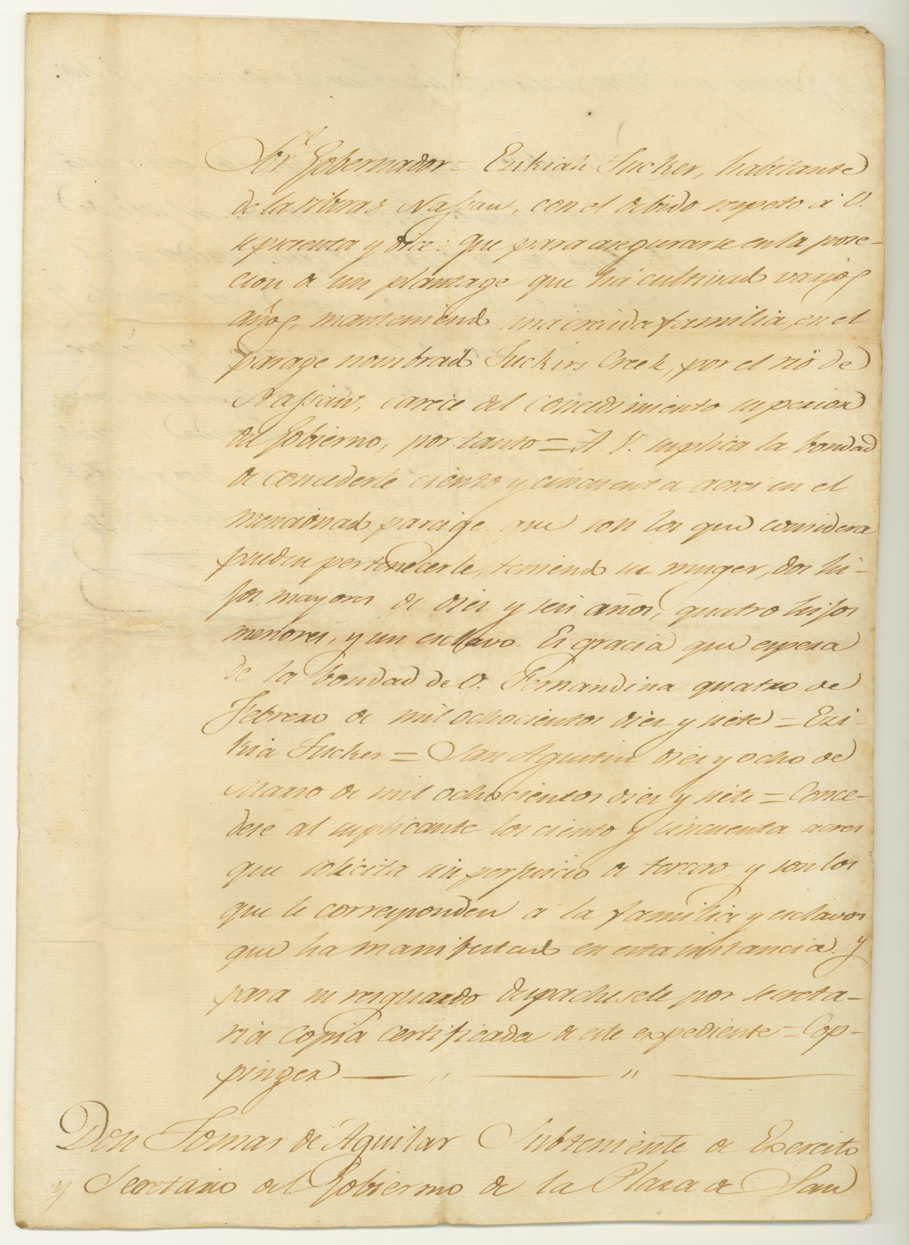 Sor. Gobernador = Ezikiah Tucker, habitante
de la ribera Nassau, con el debido respeto á V.
se presenta y dice: que para asegurarse en la pose-
cion de un plantage que há cultivado varios
años, manteniendo una crecida familia en el
parage nombrado Tuckirs Creek, por el rio de
Nassau, carece del concedimiento superior
del Gobierno, por tanto = A V. suplica la bondad
de concederle ciento y cincuenta acres en el
mencionado parage que son los que considera
pueden pertenecerle, teniendo su muger, dos hi-
jos mayores de diez y seis años, quatro hijos
menores, y un esclavo. Es gracia que espera
de la bondad de V. Fernandina quatro de
Febrero de mil ochocientos diez y siete = Ezi-
kia Tucker = San Agustin diez y ocho de
Marzo de mil ochocientos diez y siete = Conce-
dese al suplicante los ciento y cincuenta acres
que solicita sin perjuicio de tercero, y son los
que le corresponden á la familia y esclavos
que ha manifestado en esta instancia y
para su resguardo despachesele por secreta-
ria copia certificada de este expediente = Cop-
pinger
Don Tomas de Aguilar Subteniente de Exercito
y Secretario del Gobierno de la Plaza de San